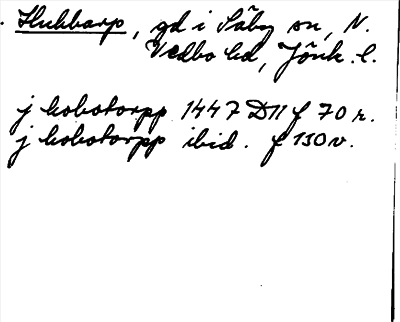 Hubbarp, gd i Säby sn, N.
Vedbo hd, Jönk. l.
j hobotorpp 1447 D11 f 70 r.
j hobotorpp ibid. f 130 v.